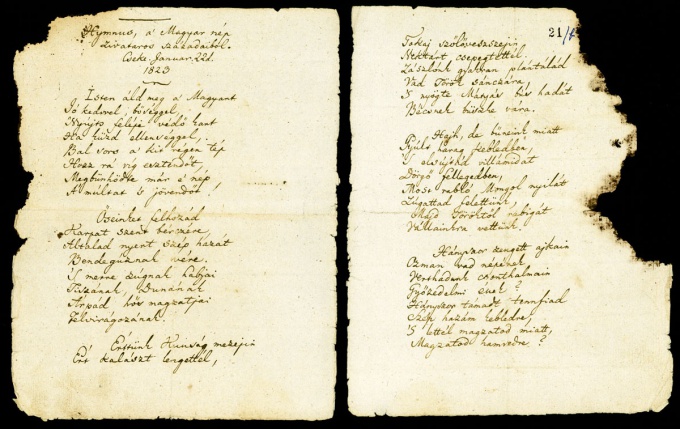 Hymnus, a' Magyar nép
zivataros századaiból.
Cseke Januar. 22d.
1823
Isten áldd meg a' Magyart
Jó kedvvel, bőséggel,
Nyújts feléje védő kart
Ha küzd ellenséggel,
Bal sors a' kit régen tép
Hozz rá víg esztendőt,
Megbűnhődte már e' nép
A' múltat 's jövendőt!
Őseinket felhozád
Kárpát szent bérczére,
Általad nyert szép hazát
Bendegúznak vére.
'S merre zúgnak habjai
Tiszának, Dunának
Árpád hős magzatjai
Felvirágozának.
Értünk Kunság mezején
Ért kalászt lengettél,
21/
Tokaj szőlővesszejin
Nektárt csepegtettél.
Zászlónk gyakran plántálád
Vad Török sánczára,
'S nyögte Mátyás bús hadát
Bécsnek büszke vára.
Hajh, de bűneink miatt
Gyúlt harag kebledben,
'S elsújtád villámidat
Dörgő fellegedben,
Most rabló Mongol nyilát
Zúgattad felettünk,
Majd Töröktől rabigát
Vállainkra vettünk.
Hányszor zengett ajkain
Ozman vad népének
Vert hadunk csonthalmain
Győzedelmi ének?
Hányszor támadt tenfiad
Szép hazám kebledre,
'S lettél magzatod miatt,
Magzatod hamvedre?